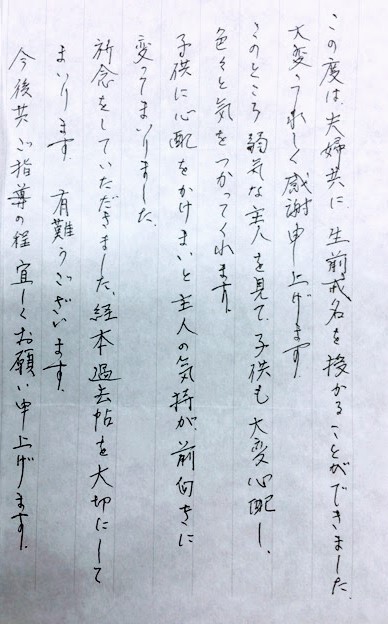 この度は、夫婦共に、生前戒名を授かることができました
大変うれしく感謝申し上げます
このところ弱気な主人を見て、子供も大変心配し、
色々と気をつかってくれます。
子供に心配をかけまいと主人の気持が、前向きに
変ってまいりました。
祈念をしていただきました、経本過去帖を大切にして
まいります　有難うございます。
今後共ご指導の程宜しくお願い申上げます。